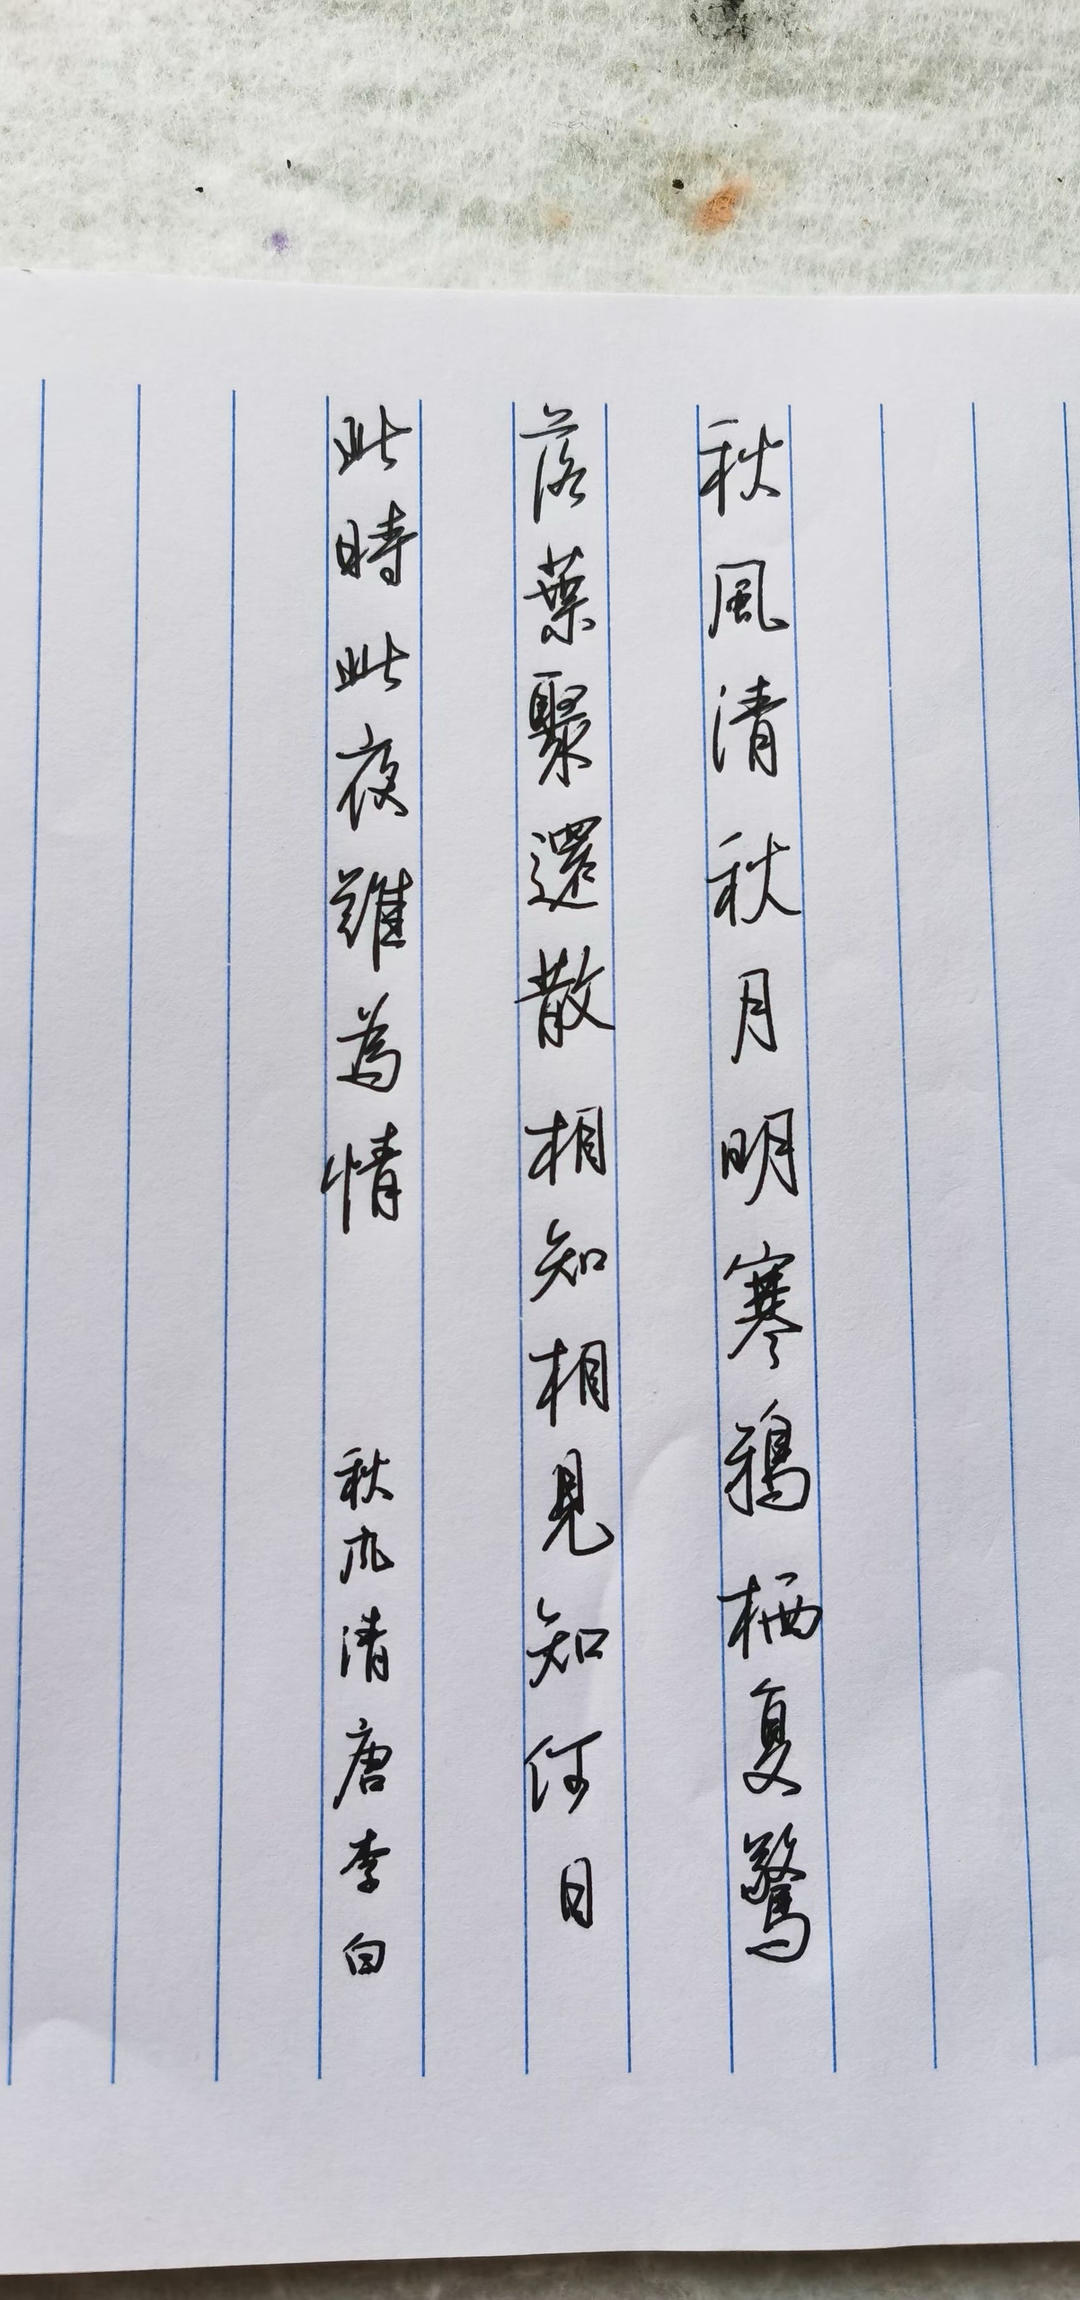 秋風清秋月明寒鴉栖复驚
落葉聚還散相知相見知何日
此時此夜難為情 秋风清唐李白